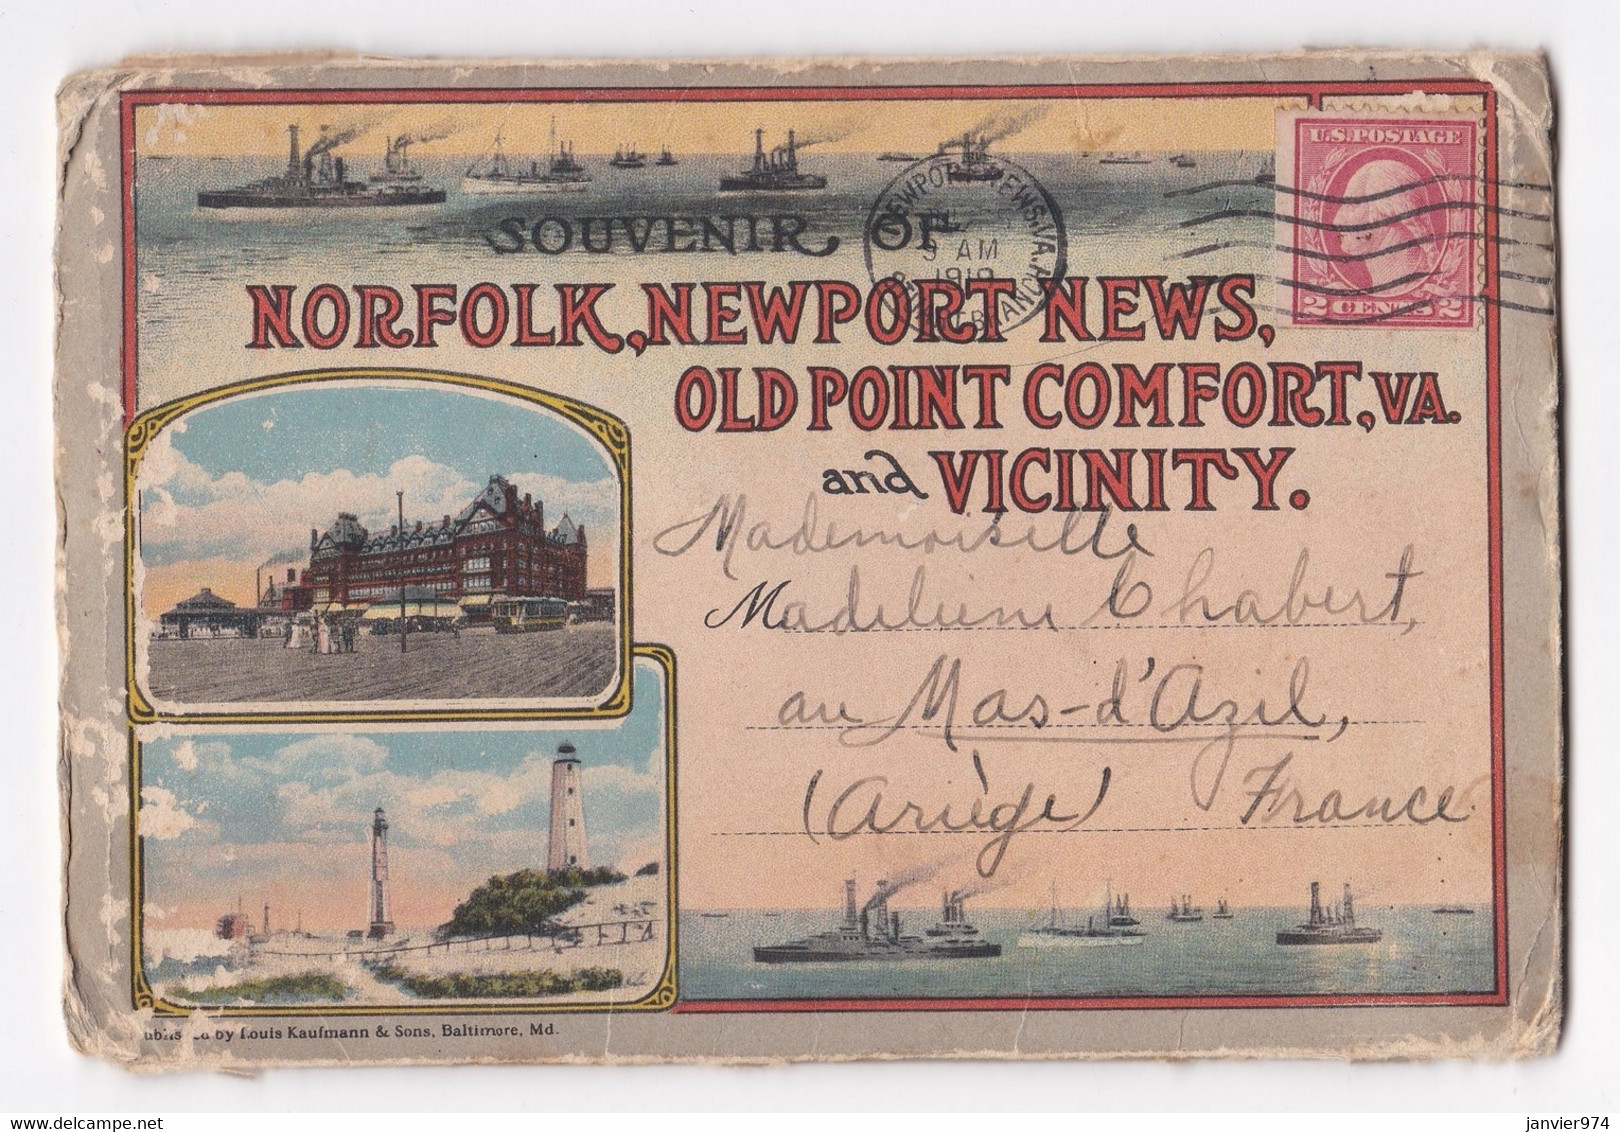 U.S. POSTAGE
2 CENTS 2
NEWPORT NEWS, VA.
9 AM
1919
BRANCH
SOUVENIR OF
NORFOLK, NEWPORT NEWS,
OLD POINT COMFORT, VA.
and VICINITY.
Mademoiselle
Madeleine Chabert,
au Mas-d'Azil,
(Ariège) France
Published by Louis Kaufmann & Sons, Baltimore, Md.
janvier974